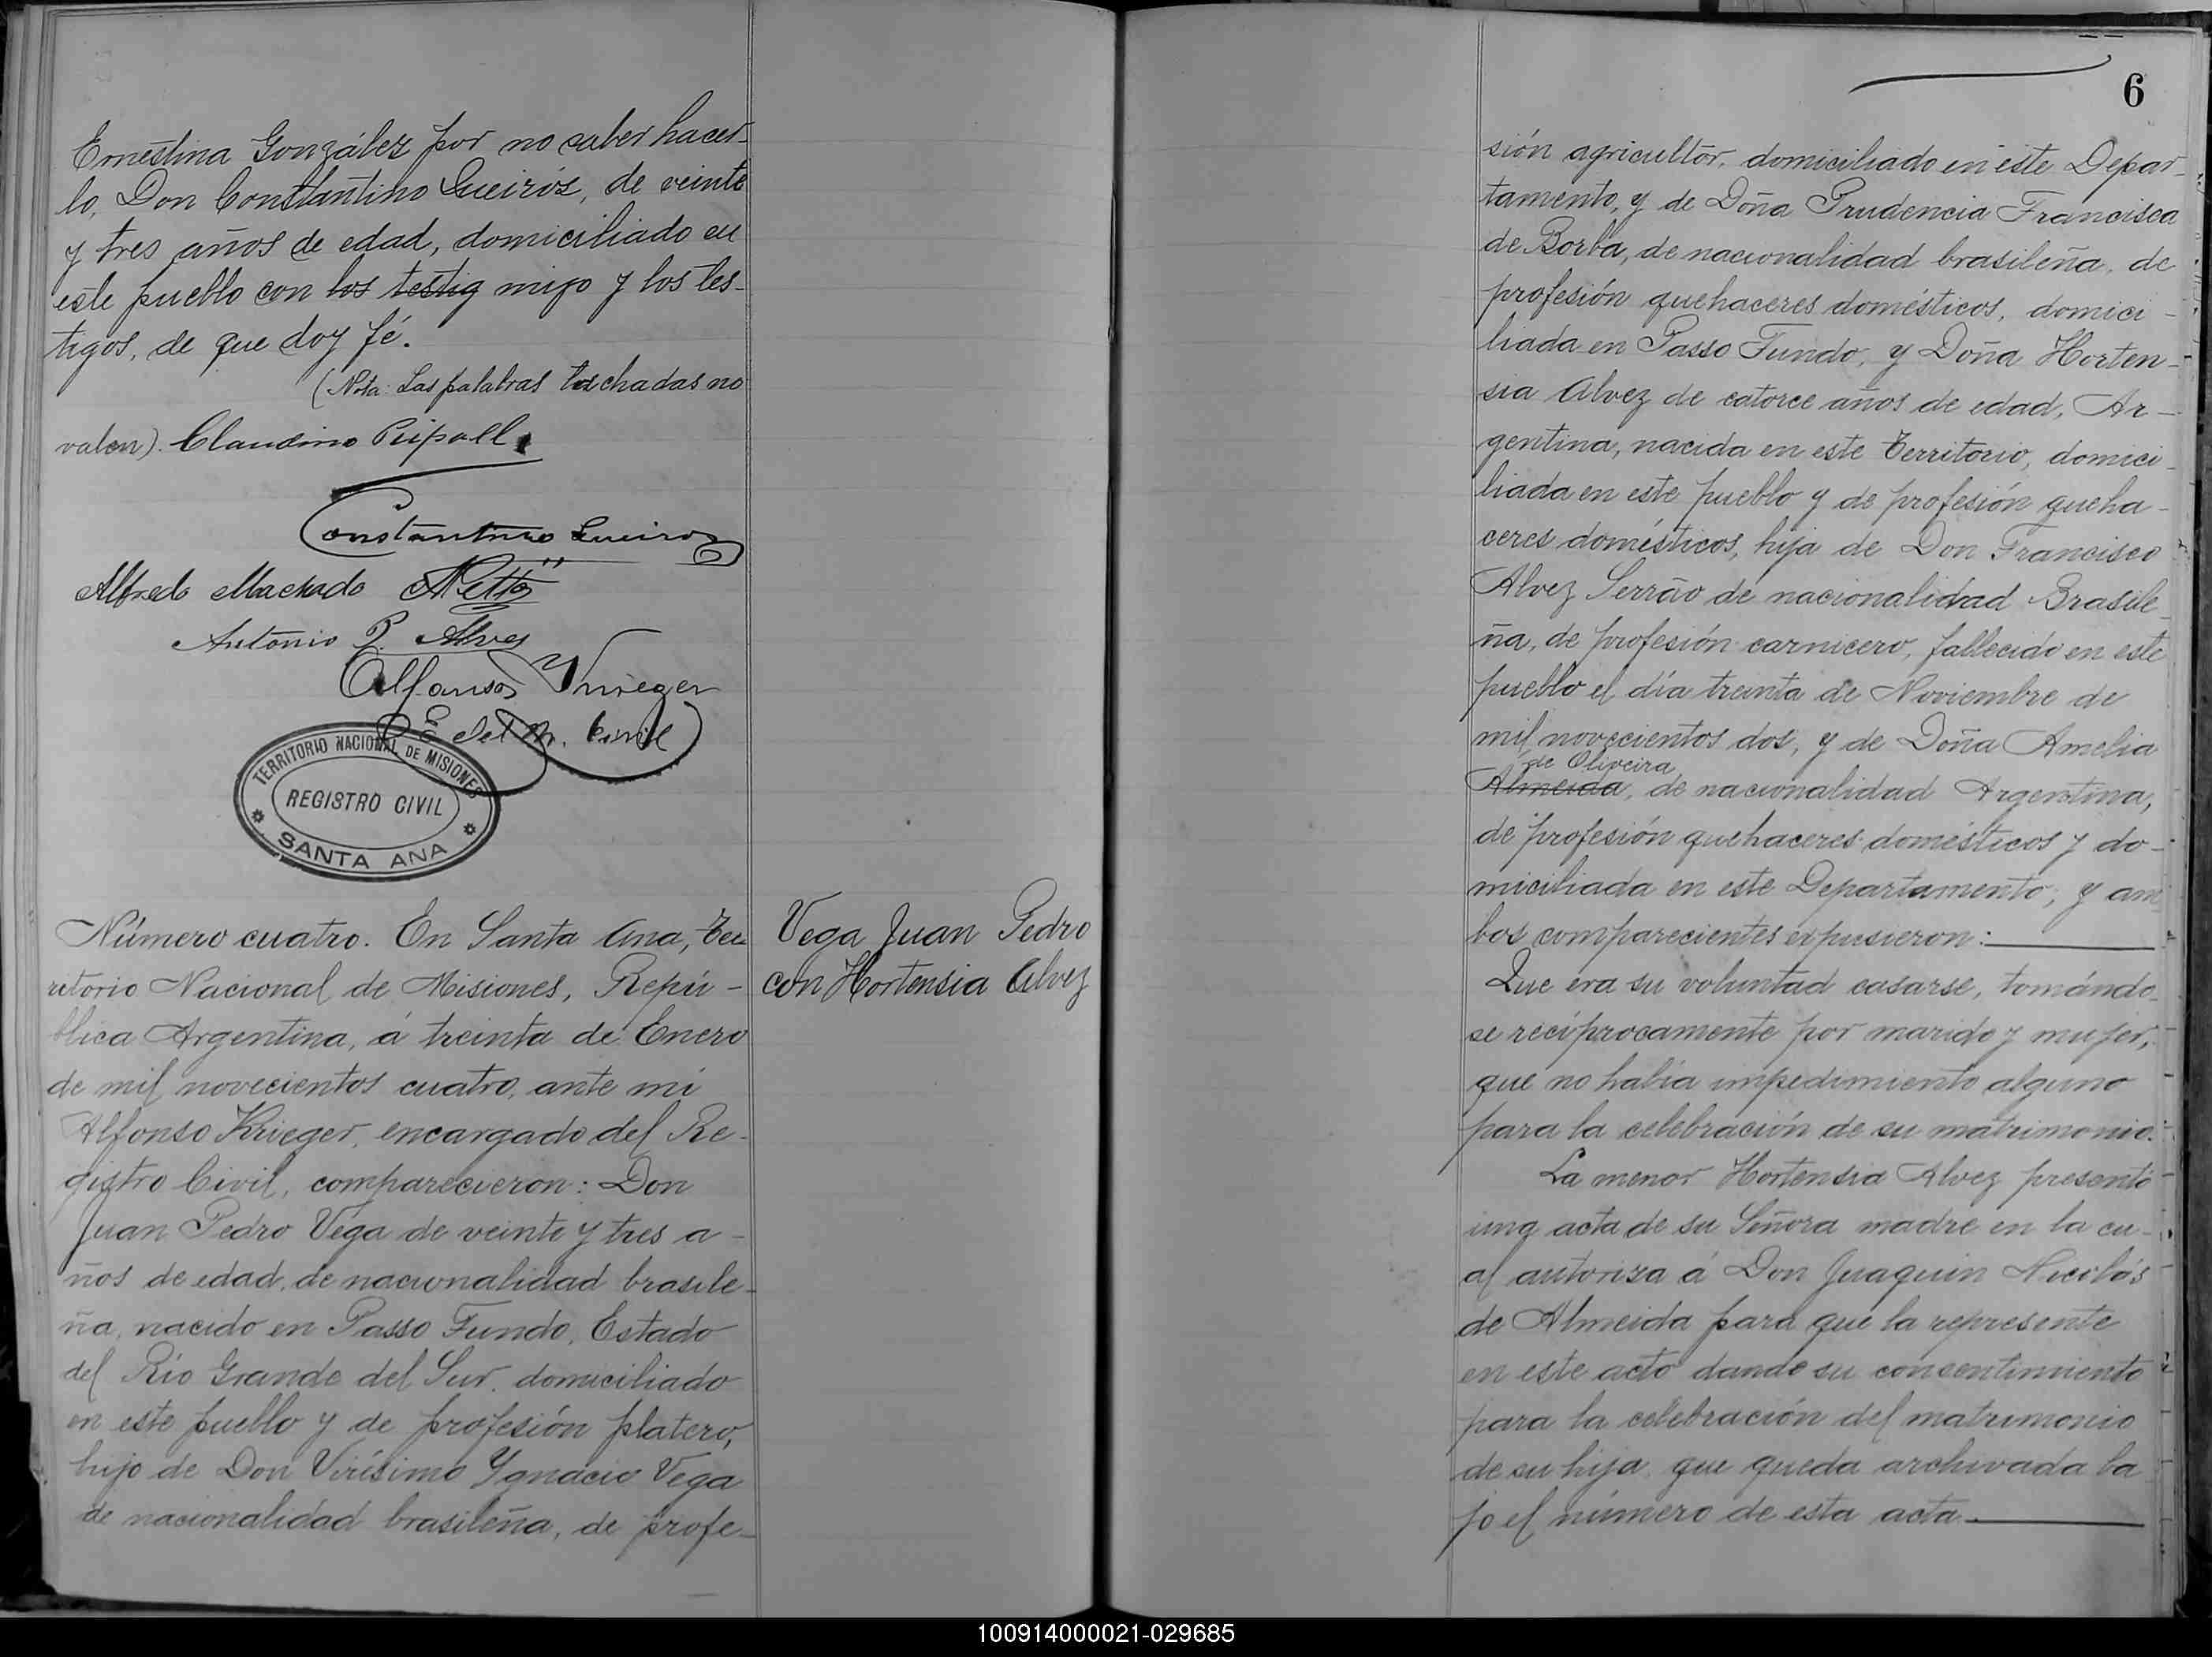 Ernestina González por no saber hacer-
lo, Don Constantino Queiróz, de veinte
y tres años de edad, domiciliado en
este pueblo con los testig migo y los tes-
tigos, de que doy fé.
(Nota: Las palabras tachadas no
valen). Claudino Ripoll
Constantino Queiroz
Alfredo Machado Netto
Antonio P. Alves
Alfonso Krieger
E. del R. Civil
TERRITORIO NACIONAL DE MISIONES
REGISTRO CIVIL
SANTA ANA
Número cuatro. En Santa Ana, Ter
ritorio Nacional de Misiones, Repú-
blica Argentina, á treinta de Enero
de mil novecientos cuatro, ante mí
Alfonso Krieger, encargado del Re-
gistro Civil, comparecieron: Don
Juan Pedro Vega de veinte y tres a-
ños de edad, de nacionalidad brasile-
ña, nacido en Passo Fundo, Estado
del Río Grande del Sur, domiciliado
en este pueblo y de profesión platero,
hijo de Don Virísimo Ygnacio Vega
de nacionalidad brasileña, de profe-
Vega Juan Pedro
con Hortensia Alvez
6
sión agricultor, domiciliado en este Depar-
tamento, y de Doña Prudencia Francisca
de Borba, de nacionalidad brasileña, de
profesión quehaceres domésticos, domici-
liada en Passo Fundo, y Doña Horten-
sia Alvez de catorce años de edad, Ar-
gentina, nacida en este Territorio, domici-
liada en este pueblo y de profesión queha-
ceres domésticos, hija de Don Francisco
Alvez Serrão de nacionalidad Brasile
ña, de profesión carnicero, fallecido en este
pueblo el día treinta de Noviembre de
mil novecientos dos, y de Doña Amelia
de Oliveira
Almeida, de nacionalidad Argentina,
de profesión quehaceres domésticos y do-
miciliada en este Departamento, y am
bos comparecientes expusieron:
Que era su voluntad casarse, tomándo-
se recíprocamente por marido y mujer,
que no había impedimiento alguno
para la celebración de su matrimonio.
La menor Hortensia Alvez presentó
una acta de su Señora madre en la cu-
al autoriza á Don Juaquin Nicolás
de Almeida para que la represente
en este acto dando su consentimiento
para la celebración del matrimonio
de su hija, que queda archivada ba
jo el número de esta acta.
100914000021-029685